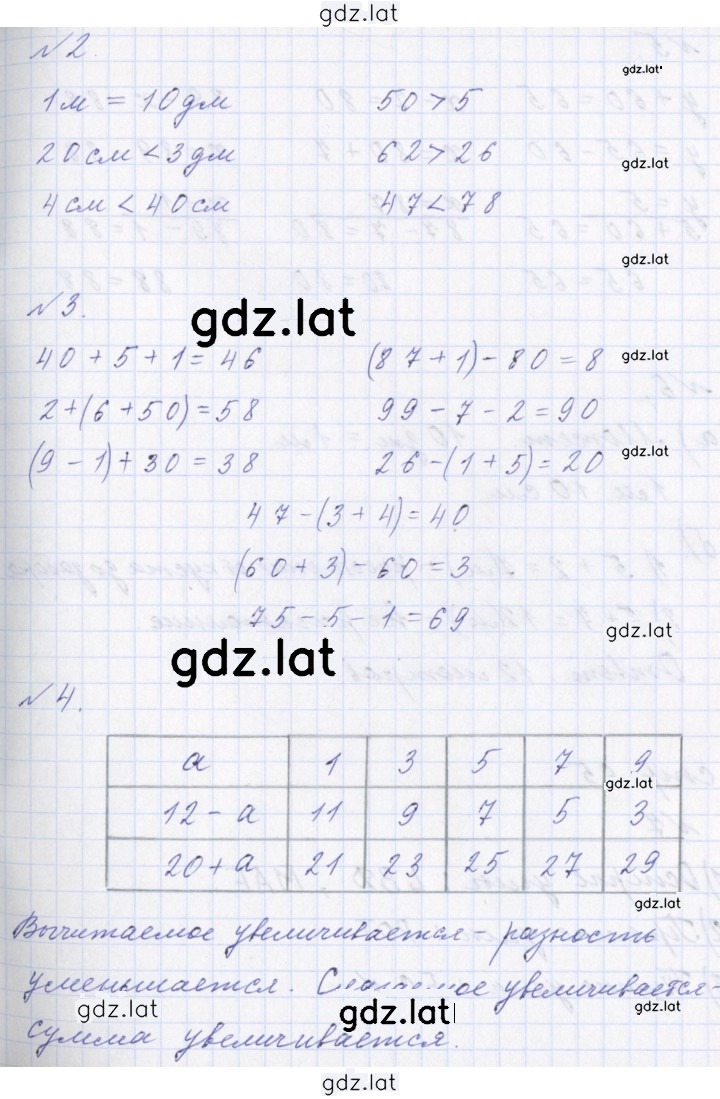 gdz.lat
№2.
1м = 10дм 50 > 5 gdz.lat
20см < 3дм 62 > 26 gdz.lat
4см < 40см 47 < 78
gdz.lat
№3. gdz.lat
40 + 5 + 1 = 46 (87 + 1) - 80 = 8 gdz.lat
2 + (6 + 50) = 58 99 - 7 - 2 = 90
(9 - 1) + 30 = 38 26 - (1 + 5) = 20 gdz.lat
47 - (3 + 4) = 40
(60 + 3) - 60 = 3
75 - 5 - 1 = 69 gdz.lat
gdz.lat
№4.
a 1 3 5 7 9
gdz.lat
12 - a 11 9 7 5 3
20 + a 21 23 25 27 29
gdz.lat
Вычитаемое увеличивается - разность
уменьшается. Слагаемое увеличивается -
gdz.lat gdz.lat gdz.lat
сумма увеличивается.
gdz.lat